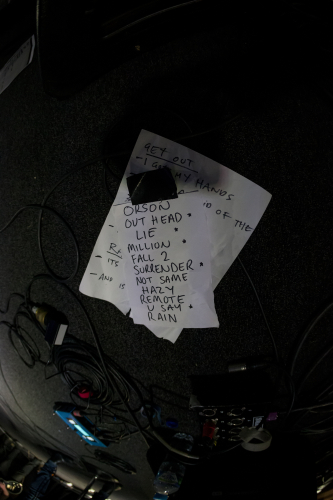 GET OUT
- I GOT MY HANDS
ORSON
OF THE
- OUT HEAD *
LIE *
MILLION *
ITS FALL 2
SURRENDER *
- AND IS NOT SAME
HAZY
REMOTE
U SAY *
RAIN